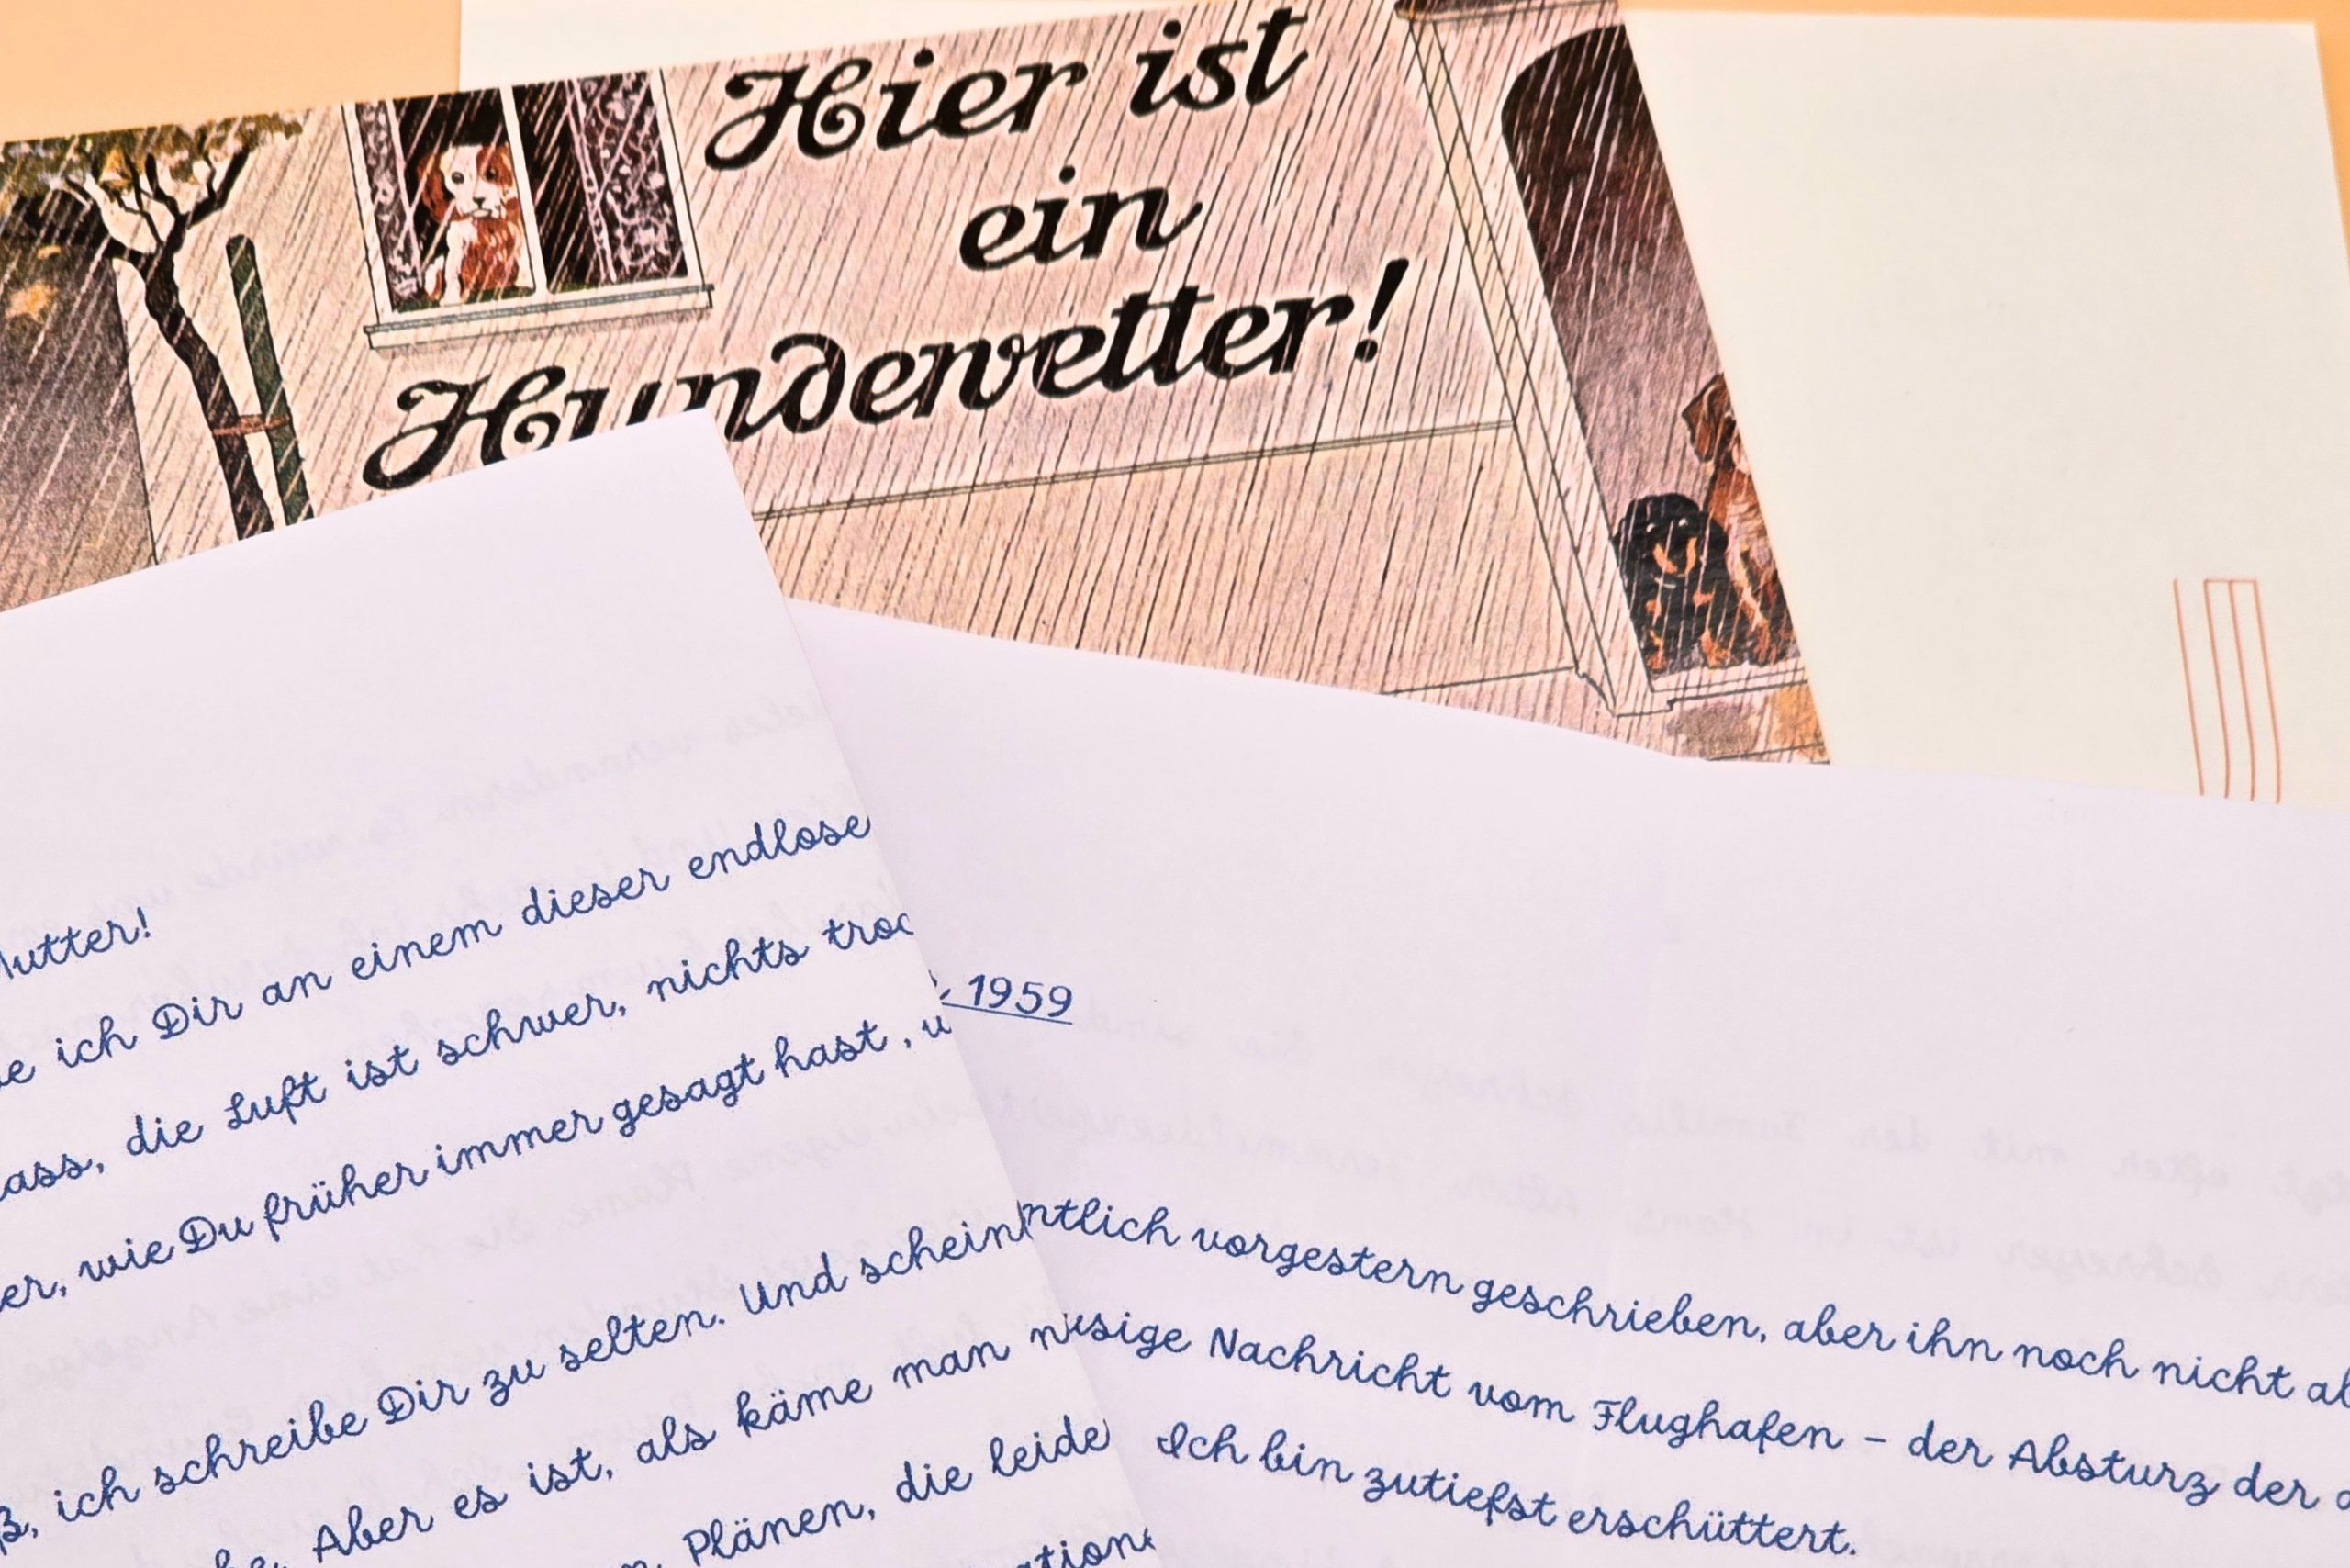 Hier ist
ein
Hundewetter!
utter!
ich Dir an einem dieser endlose
ass, die Luft ist schwer, nichts troc
er, wie Du früher immer gesagt hast, u
ß, ich schreibe Dir zu selten. Und schein
he. Aber es ist, als käme man n
n Plänen, die leide
ation
1959
ntlich vorgestern geschrieben, aber ihn noch nicht ab
sige Nachricht vom Flughafen – der Absturz der
Ich bin zutiefst erschüttert.